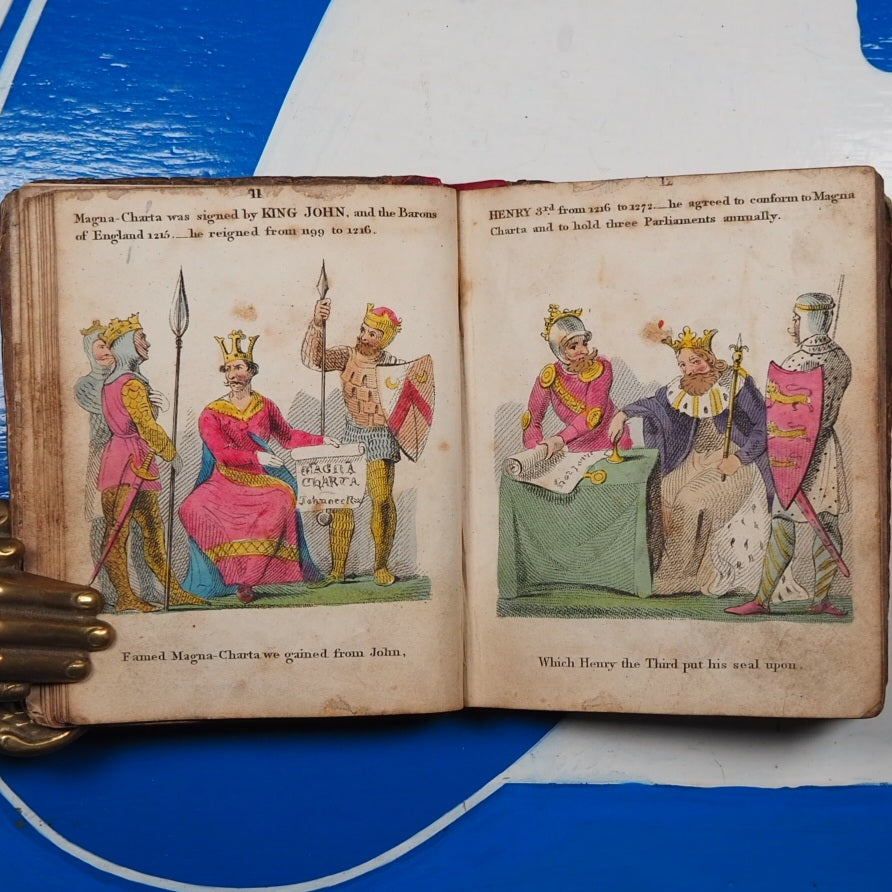 11
Magna-Charta was signed by KING JOHN, and the Barons
of England 1215.__he reigned from 1199 to 1216.
MAGNA
CHARTA
Famed Magna-Charta we gained from John,
12
HENRY 3rd from 1216 to 1272.__he agreed to conform to Magna
Charta and to hold three Parliaments annually.
Which Henry the Third put his seal upon.